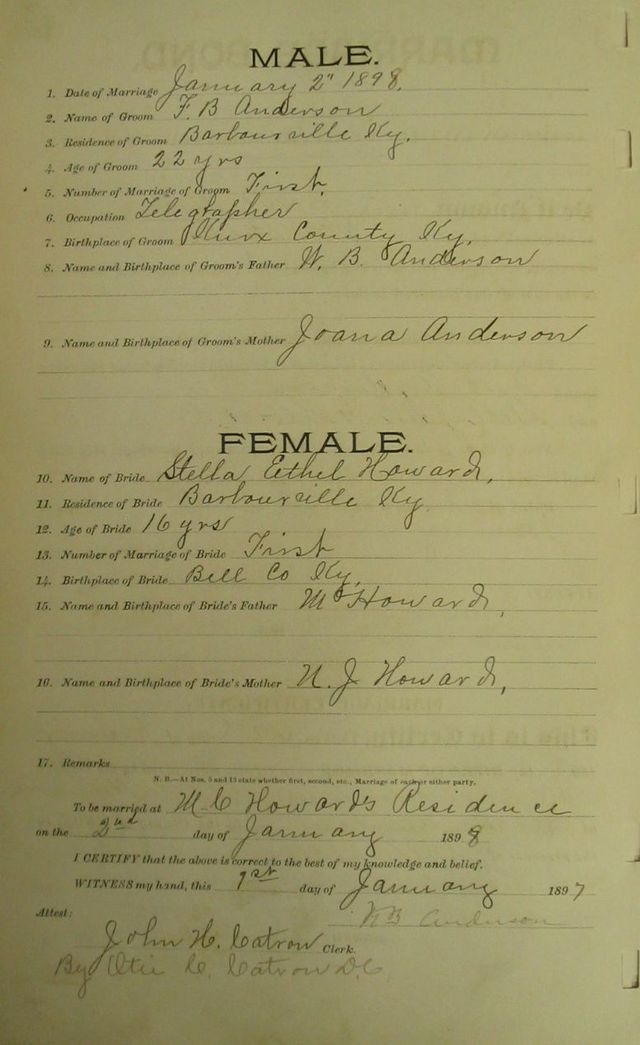 MALE.
1. Date of Marriage January 2" 1898.
2. Name of Groom F. B Anderson
3. Residence of Groom Barbourville Ky.
4. Age of Groom 22 yrs
5. Number of Marriage of Groom First,
6. Occupation Telegrapher
7. Birthplace of Groom Knox County Ky.
8. Name and Birthplace of Groom's Father W. B. Anderson
9. Name and Birthplace of Groom's Mother Joana Anderson
FEMALE.
10. Name of Bride Stella Ethel Howard,
11. Residence of Bride Barbourville Ky
12. Age of Bride 16 yrs
13. Number of Marriage of Bride First
14. Birthplace of Bride Bell Co Ky,
15. Name and Birthplace of Bride's Father M C Howard,
16. Name and Birthplace of Bride's Mother N. J Howard,
17. Remarks
N. B.—At Nos. 5 and 13 state whether first, second, etc., Marriage of each or either party.
To be married at M. C Howard's Residence
on the 2nd day of January 1898
I CERTIFY that the above is correct to the best of my knowledge and belief.
WITNESS my hand, this 1st day of January 1897
Attest: Anderson
John H. Catron Clerk.
By Otie C. Catron D.C.